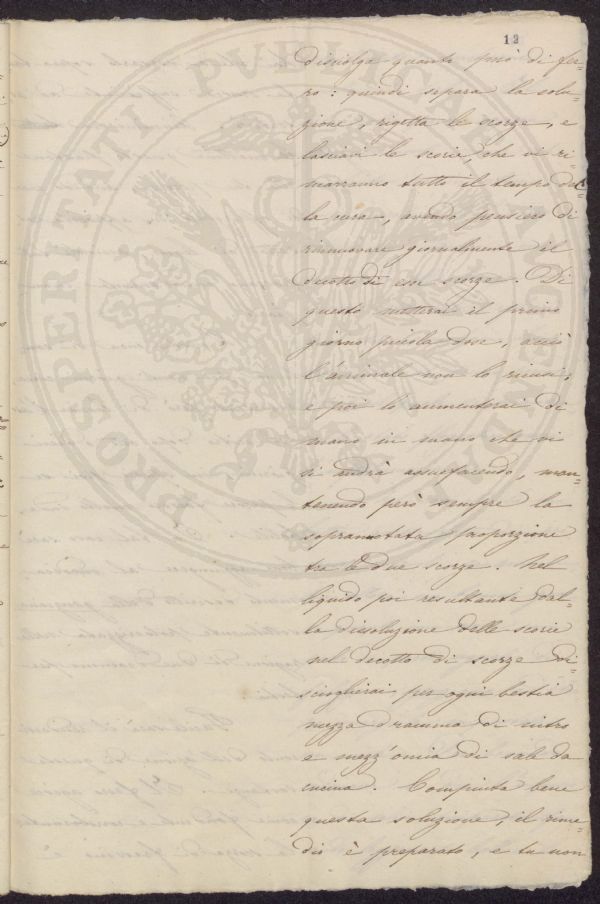 12
disciolga quanto può di fer-
ro: quindi separa la solu-
zione, rigetta le scorze, e
lasciavi le scorie, che vi ri-
marranno tutto il tempo del-
la cura, avendo pensiero di
rinnuovare giornalmente il
decotto di esse scorze. Di
questo metterai il primo
giorno piccola dose, acciò
l'animale non lo ricusi;
e poi lo aumenterai di
mano in mano che vi
si andrà assuefacendo, man-
tenendo però sempre la
sopranotata proporzione
tra le due scorze. Nel
liquido poi resultante dal-
la dissoluzione delle scorie
nel decotto di scorze di-
scioglierai per ogni bestia
mezza dramma di nitro
e mezz'oncia di sale da
cucina. Compiuta bene
questa soluzione, il rime-
dio è preparato, e tu non
PROSPERITATI PUBLICAE AUGENDAE